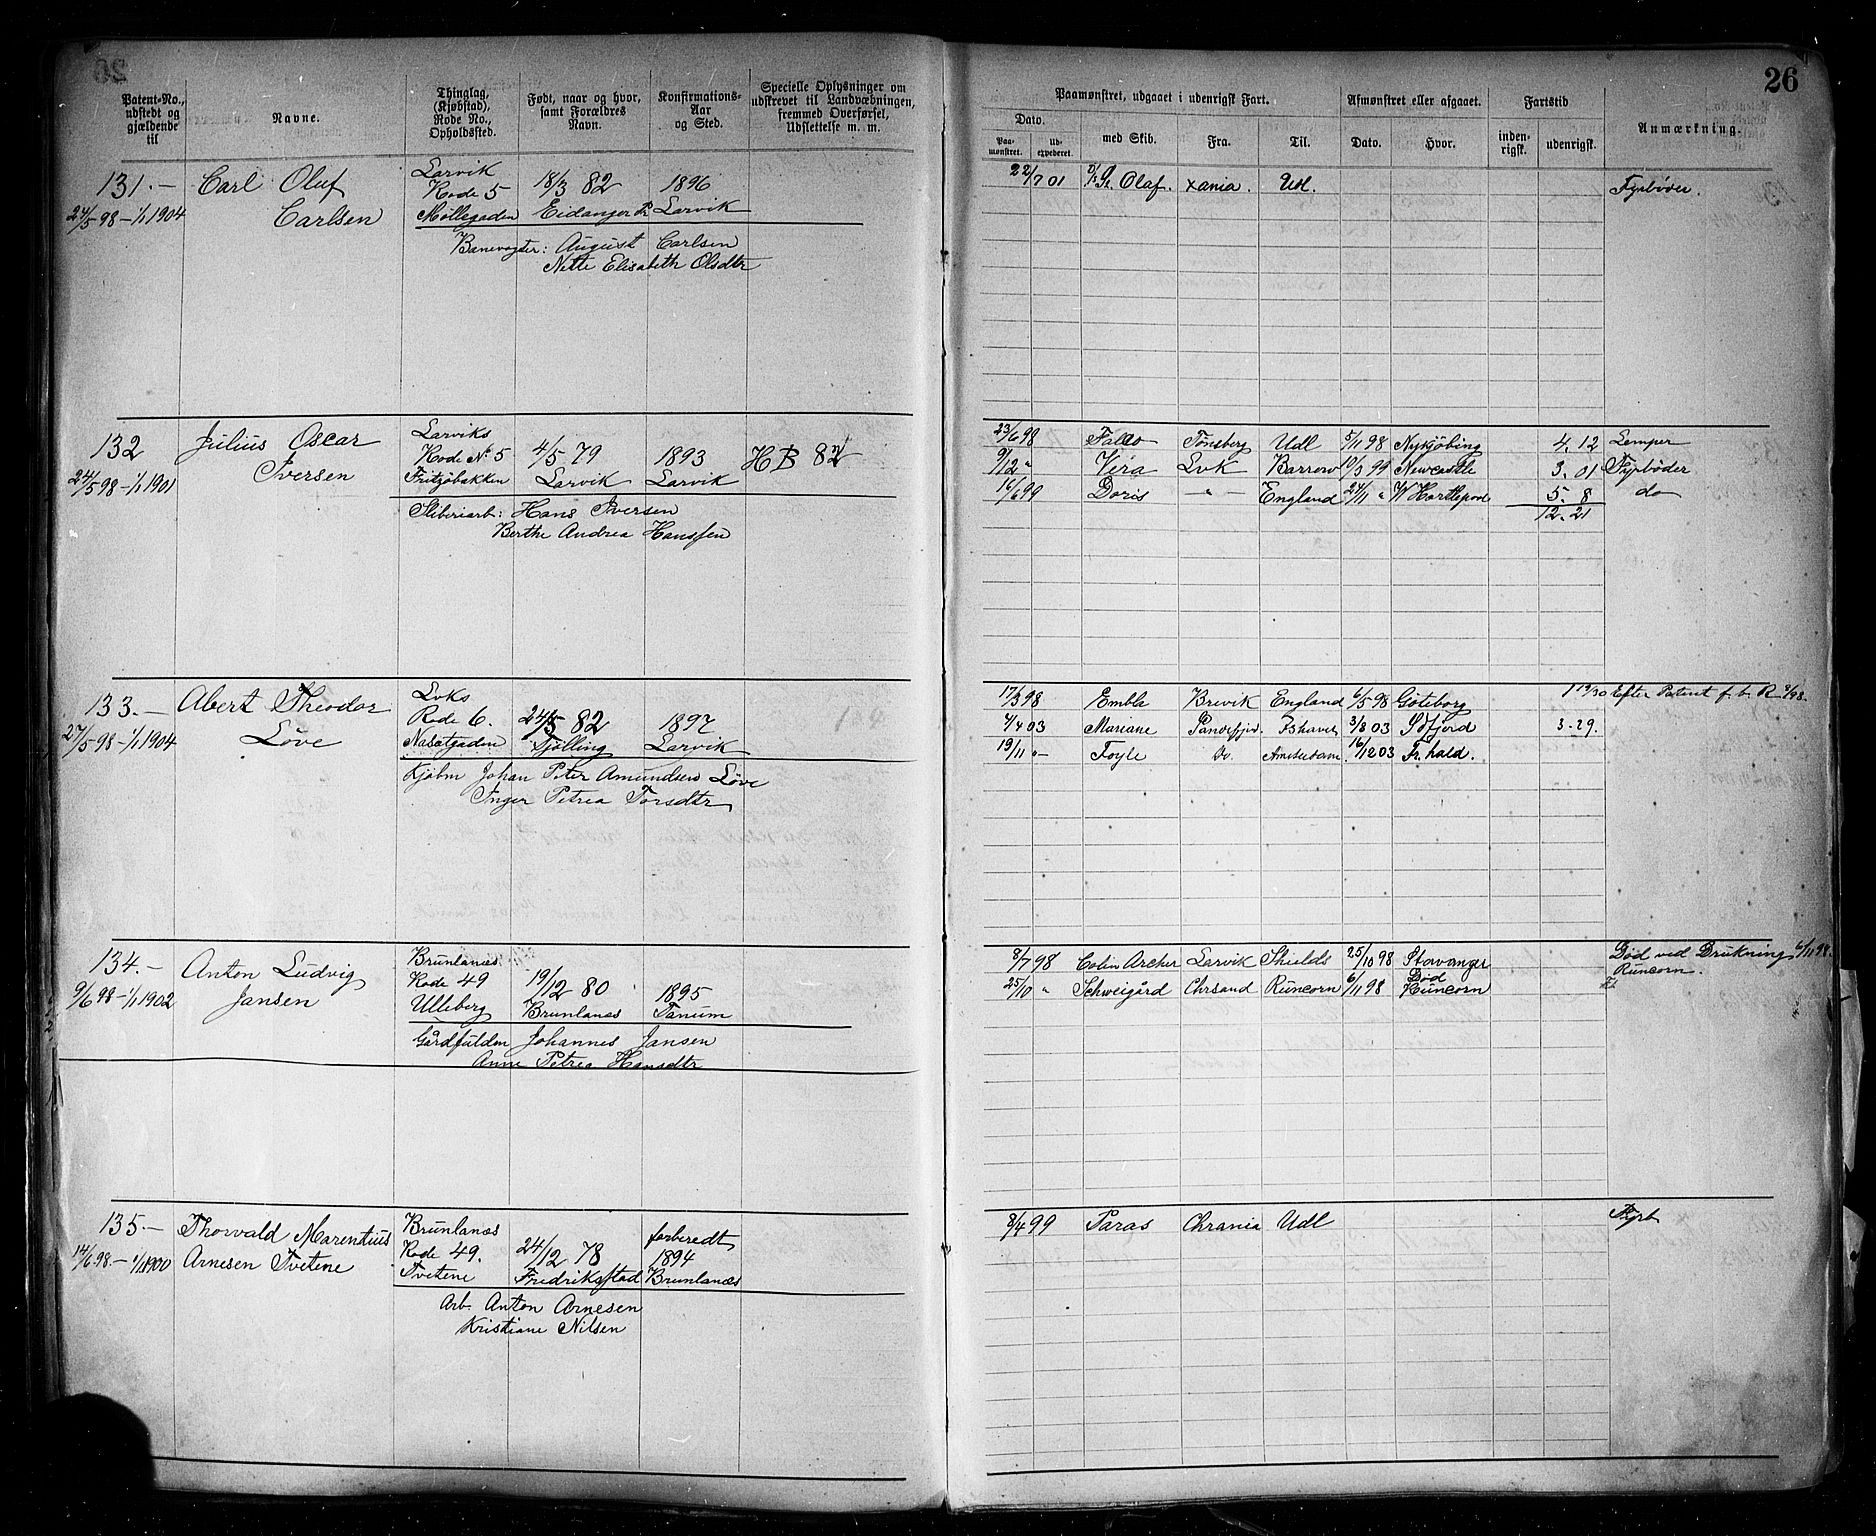 26
Patent-No., udstedt og gjældende til
Navne.
Thinglag, (Kjøbstad), Rode No., Opholdssted.
Født, naar og hvor, samt Forældres Navn.
Konfirmations-Aar og Sted.
Specielle Oplysninger om udskrevet til Landværningen, fremmed Overførsel, Udslettelse m. m.
Paamønstret, udgaaet i udenrigsk Fart.
Afmønstret eller afgaaet.
Fartstid
Anmærkning.
Dato.
Paamønstret.
Udexpederet.
med Skib.
Fra.
Til.
Dato.
Hvor.
indenrigsk.
udenrigsk.
131.- Carl Oluf Larvik
Rode 5 18/3 82 1896
24/5 98 - 1/1 1904 Carlsen Møllegaden Eidanger Pr Larvik
Banevogter: August Carlsen
Nette Elisabeth Olsdtr
22/7 01 Olaf. Xania. Udl. Fyrbøder.
132 Julius Oscar Larviks
Rode No 5 4/5 79 1893 HB 82
24/5 98 - 1/1 1901 Iversen Fritzøbakken Larvik Larvik
Sliberiarb: Hans Iversen
Berthe Andrea Hanssen
23/6 98 Falco Tønsberg Udl 5/11 98 Nykjöbing 4. 12 Lemper
9/12 " Vera Lvk Barrow 10/3 99 Newcastle 3. 01 Fyrbøder
16/6 99 Doris - " - England 24/11 " W Hartlepool 5. 8 do
12. 21
133.- Abert Theodor Lvks
Rode 6. 24/5 82 1897
27/5 98 - 1/1 1904 Løve Nasætgaden Tjølling Larvik
Kjøbm Johan Peter Amundsen Løve
Inger Petrea Torsdtr
17/3 98 Embla Brevik England 6/5 98 Göteborg 1 19/30 Efter Patent f. b. R 9/98.
4/4 03 Mariane Sandefjor Ishavet 3/8 03 Söfjord 3-29.
19/11 " - Foyle Do. Amsterdam. 16/12 03 Fr. hald.
134.- Anton Ludvig Brunlanes
Rode 49 19/12 80 1895
9/6 98 - 1/1 1902 Jansen Ulleberg Brunlanes Tanum
Gårdfulden Johannes Jansen
Anne Petrea Hansdtr
8/7 98 Colin Archer Larvik Shields 25/10 98 Stavanger Död ved Drukning 6/11 98.
Runcorn.
25/10 " Schweigård Chrsand Runcorn 6/11 98 Död
Runcorn
135.- Thorvald Marentius Brunlanes forberedt
Rode 49. 24/12 78 1894
14/6 98. - 1/1 1900 Arnesen Tvetene Tvetene Fredrikstad Brunlanes
Arb. Anton Arnesen
Kristiane Nilsen
8/4 99 Paras Chrania Udl Fyrb